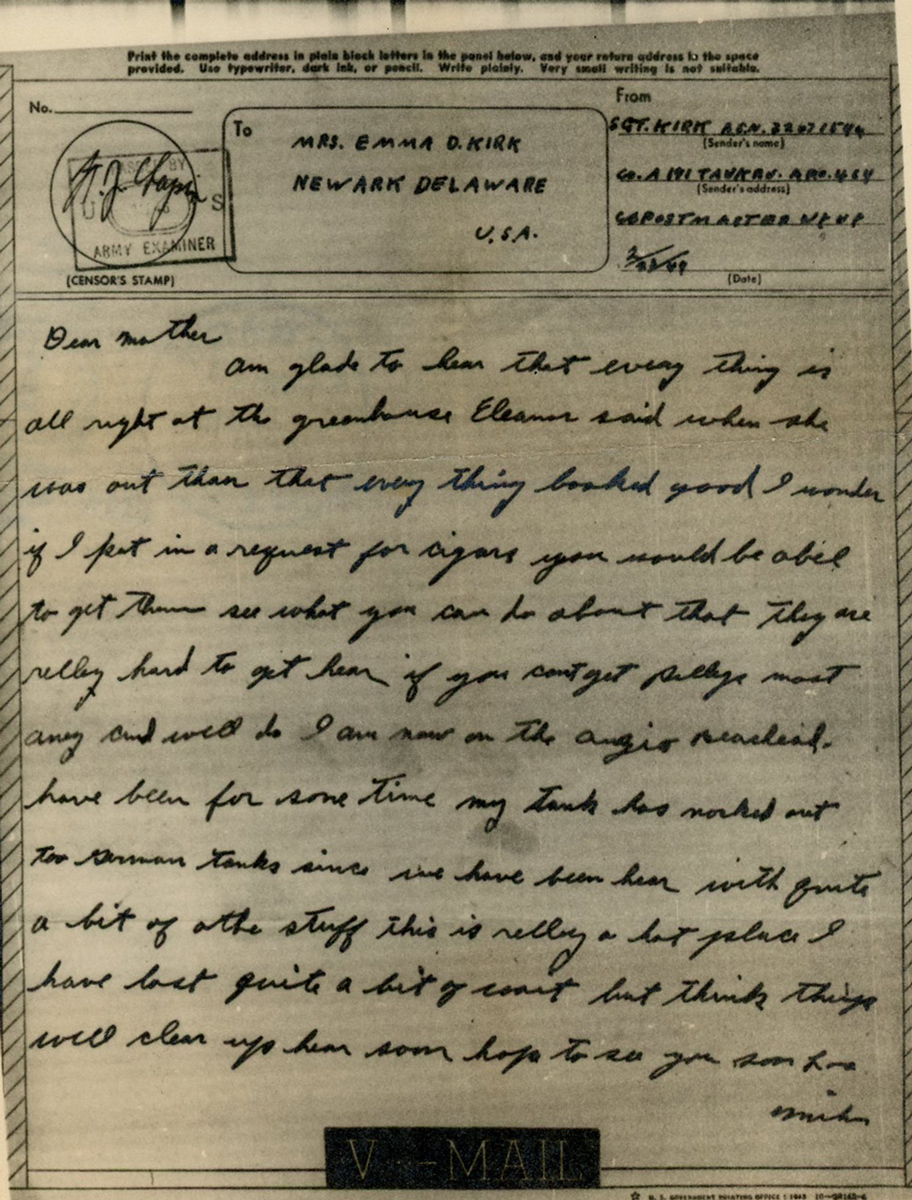 Print the complete address in plain block letters in the panel below, and your return address in the space
provided. Use typewriter, dark ink, or pencil. Write plainly. Very small writing is not suitable.
No.
To
MRS. EMMA D. KIRK
NEWARK DELAWARE
U.S.A.
From
SGT. KIRK ASN.
(Sender's name)
CO. A 191 TANK BN. APO. 464
(Sender's address)
POSTMASTER
(Date)
PASSED BY
U S
ARMY EXAMINER
(CENSOR'S STAMP)
Dear mother
am glade to hear that every thing is
all right at the greenhouse Eleanor said when she
was out thar that every thing looked good I wonder
if I put in a request for cigars you would be abil
to get them see what you can do about that they are
relley hard to get hear if you cant get pellys most
aney kind will do I am now on the anzio beachead.
have been for some time my tank has nocked out
too German tanks since we have been hear with quite
a bit of othe stuff this is relley a hot place I
have lost quite a bit of wait but think things
will clear up hear soon hop to see you soon
V - MAIL